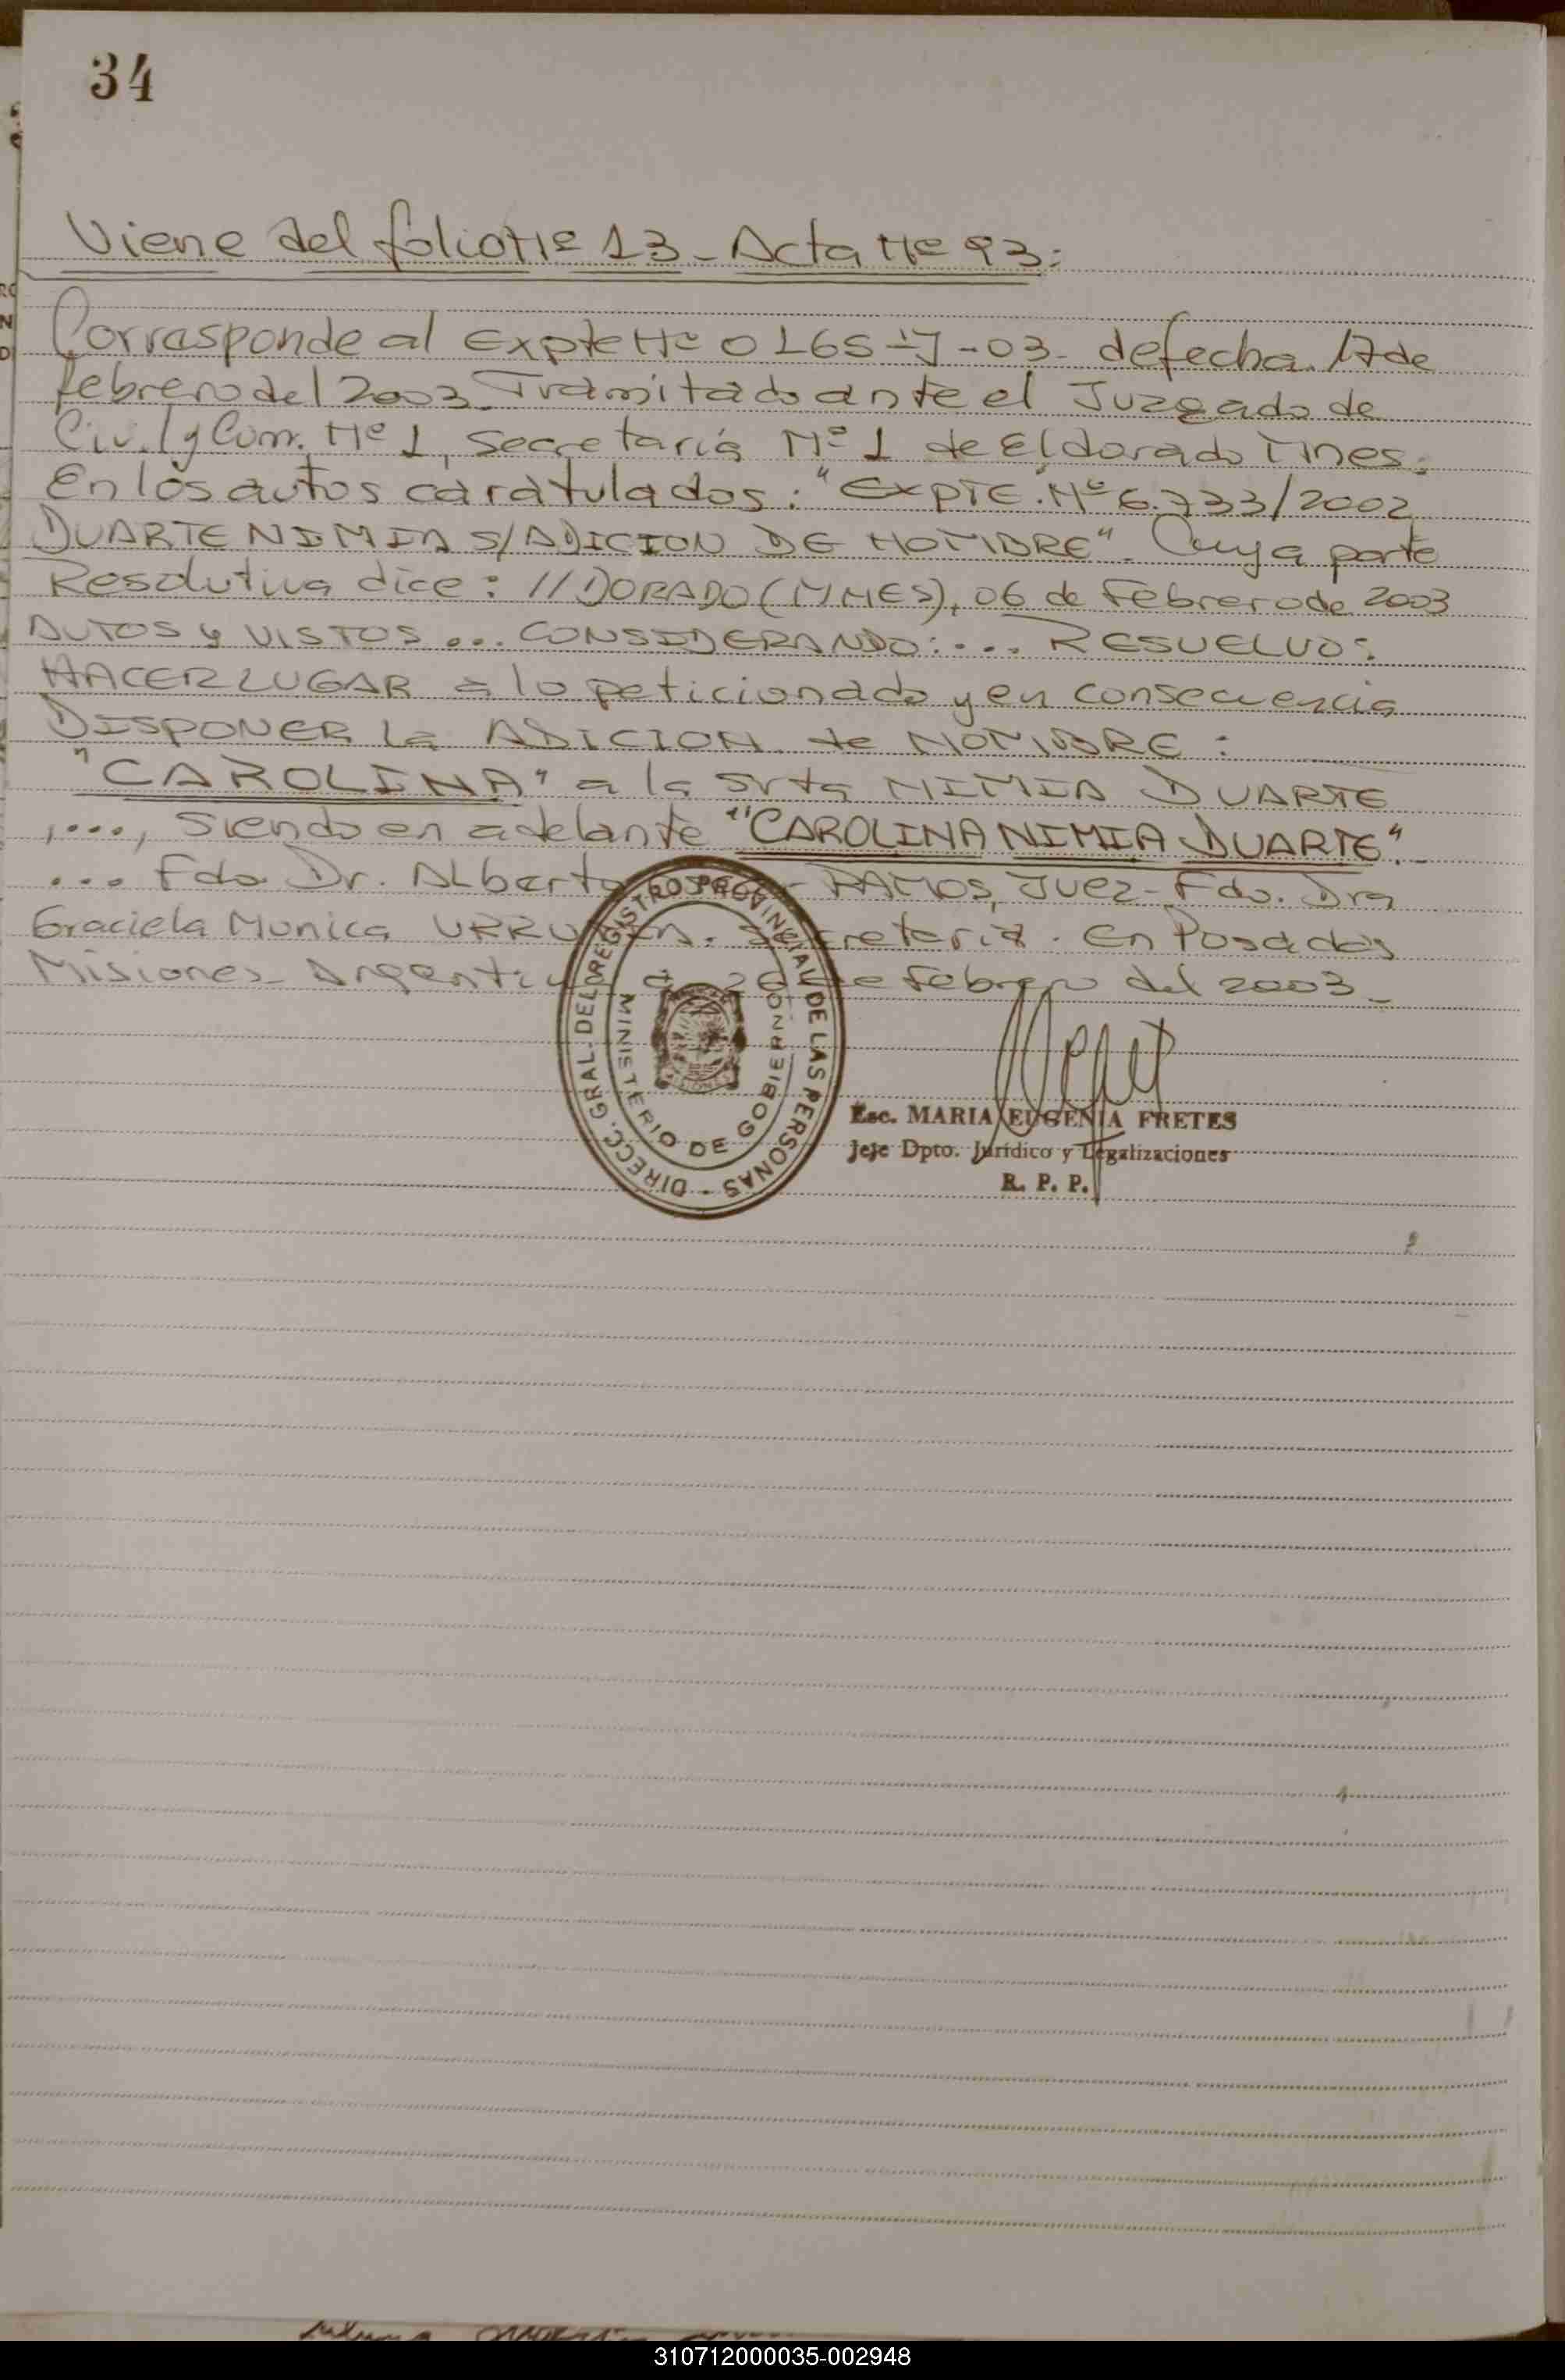 34
Viene del folio Nº 13 - Acta Nº 93:
Corresponde al Expte Nº 0165-"J"-03- de fecha 17 de
febrero del 2003. Tramitado ante el Juzgado de
Civ. y Com. Nº 1, Secretaría Nº 1 de Eldorado Mnes.
En los autos caratulados: "EXPTE. Nº 6.733/2002
DUARTE NIMIA S/ADICION DE NOMBRE". Cuya parte
Resolutiva dice: //DORADO (MNES), 06 de Febrero de 2003
AUTOS y VISTOS... CONSIDERANDO:... RESUELVO:
HACER LUGAR a lo peticionado y en consecuencia
DISPONER la ADICION de NOMBRE:
"CAROLINA" a la Srta NIMIA DUARTE
,..., siendo en adelante "CAROLINA NIMIA DUARTE".-
... Fdo Dr. Alberto RAMOS, Juez - Fdo. Dra
Graciela Monica Secretaria. En Posadas
Misiones - Argentina a 26 de febrero del 2003 -
DIRECC. GRAL. DEL REGISTRO PROVINCIAL DE LAS PERSONAS -
MINISTERIO DE GOBIERNO
MISIONES
Esc. MARIA EUGENIA FRETES
Jefe Dpto. Jurídico y Legalizaciones
R. P. P.
310712000035-002948